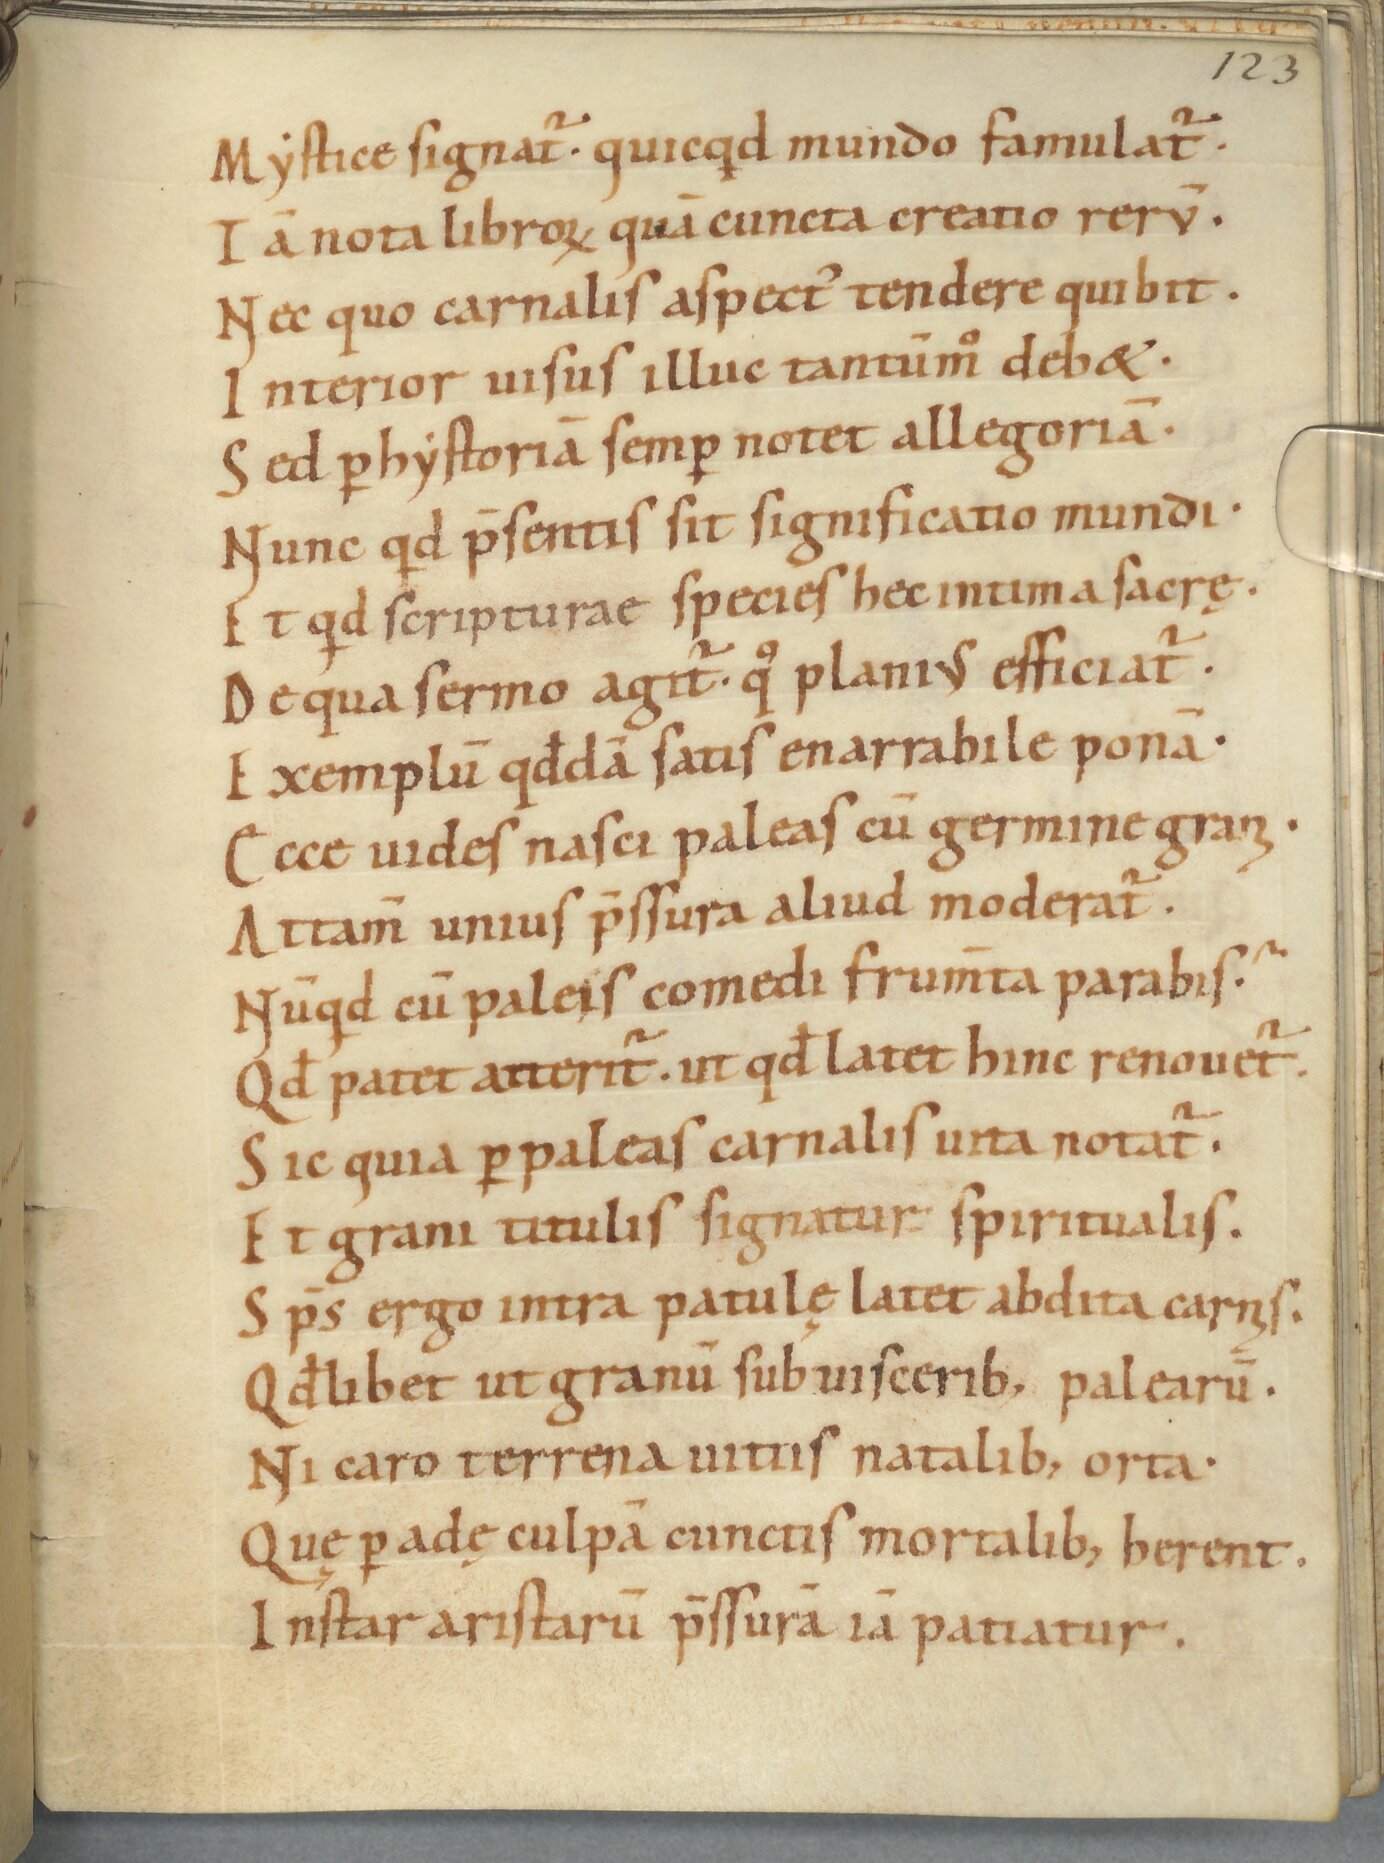 123
Mẏstice signat᷑. quicqd mundo famulat᷑.
Iā nota libroꝝ quā cuncta creatio rerū.
Nec quo carnalis aspectꝰ tendere quibit.
Interior uisus illuc tantūmͦ deb&.
Sed ꝑ hẏstoriā semꝑ notet allegoriā.
Nunc qd p̄sentis sit significatio mundi.
Et qd scripturae species hec intima sacrę.
De qua sermo agit᷑. qͦ planius efficiat᷑.
Exemplū qđdā satis enarrabile ponā.
Ecce uides nasci paleas cū germine grani.
Attam̄ unius p̄ssura aliud moderat᷑.
Nūqd cū paleis comedi frum̄ta parabis.
Qđ patet atterit᷑. ut qđ latet hinc renouet᷑.
Sic quia ꝑ paleas carnalis uita notat᷑.
Et grani titulis signatur spiritualis.
Sp̄s ergo intra patulę latet abdita carnis.
Qđlibet ut granū sub uiscerib; palearū.
Ni caro terrena uitiis natalib; orta.
Quę ꝑ adę culpā cunctis mortalib; herent.
Instar aristarū p̄ssurā iā patiatur.